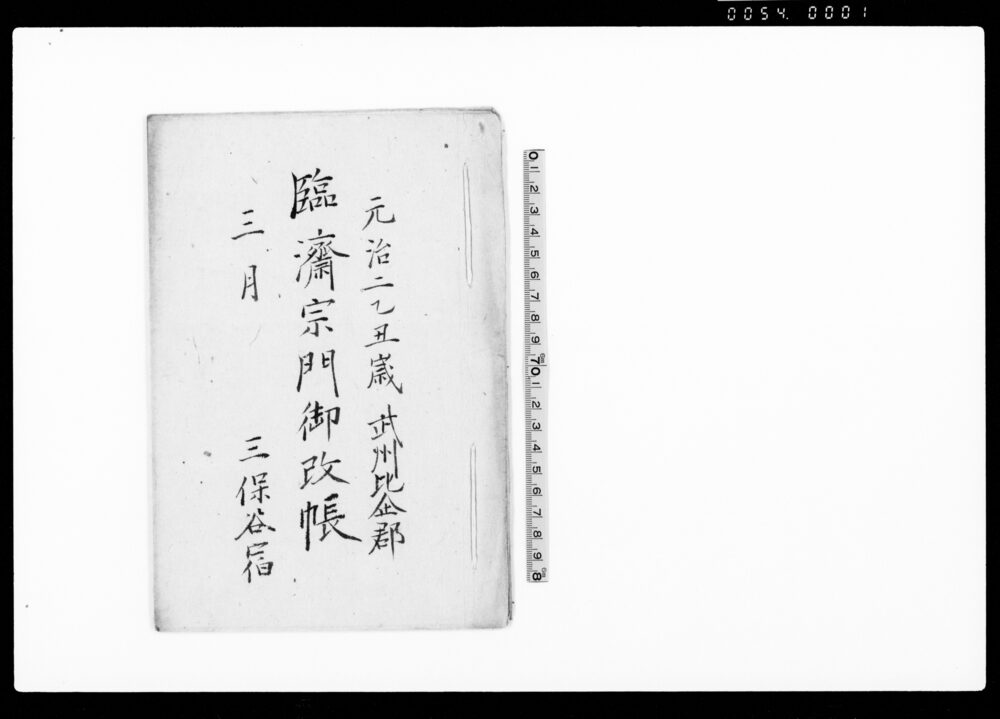 0054. 0001
元治二乙丑歳 武州比企郡
臨濟宗門御改帳
三月 三保谷宿
0 1 2 3 4 5 6 7 8 9 10 1 2 3 4 5 6 7 8 9 8